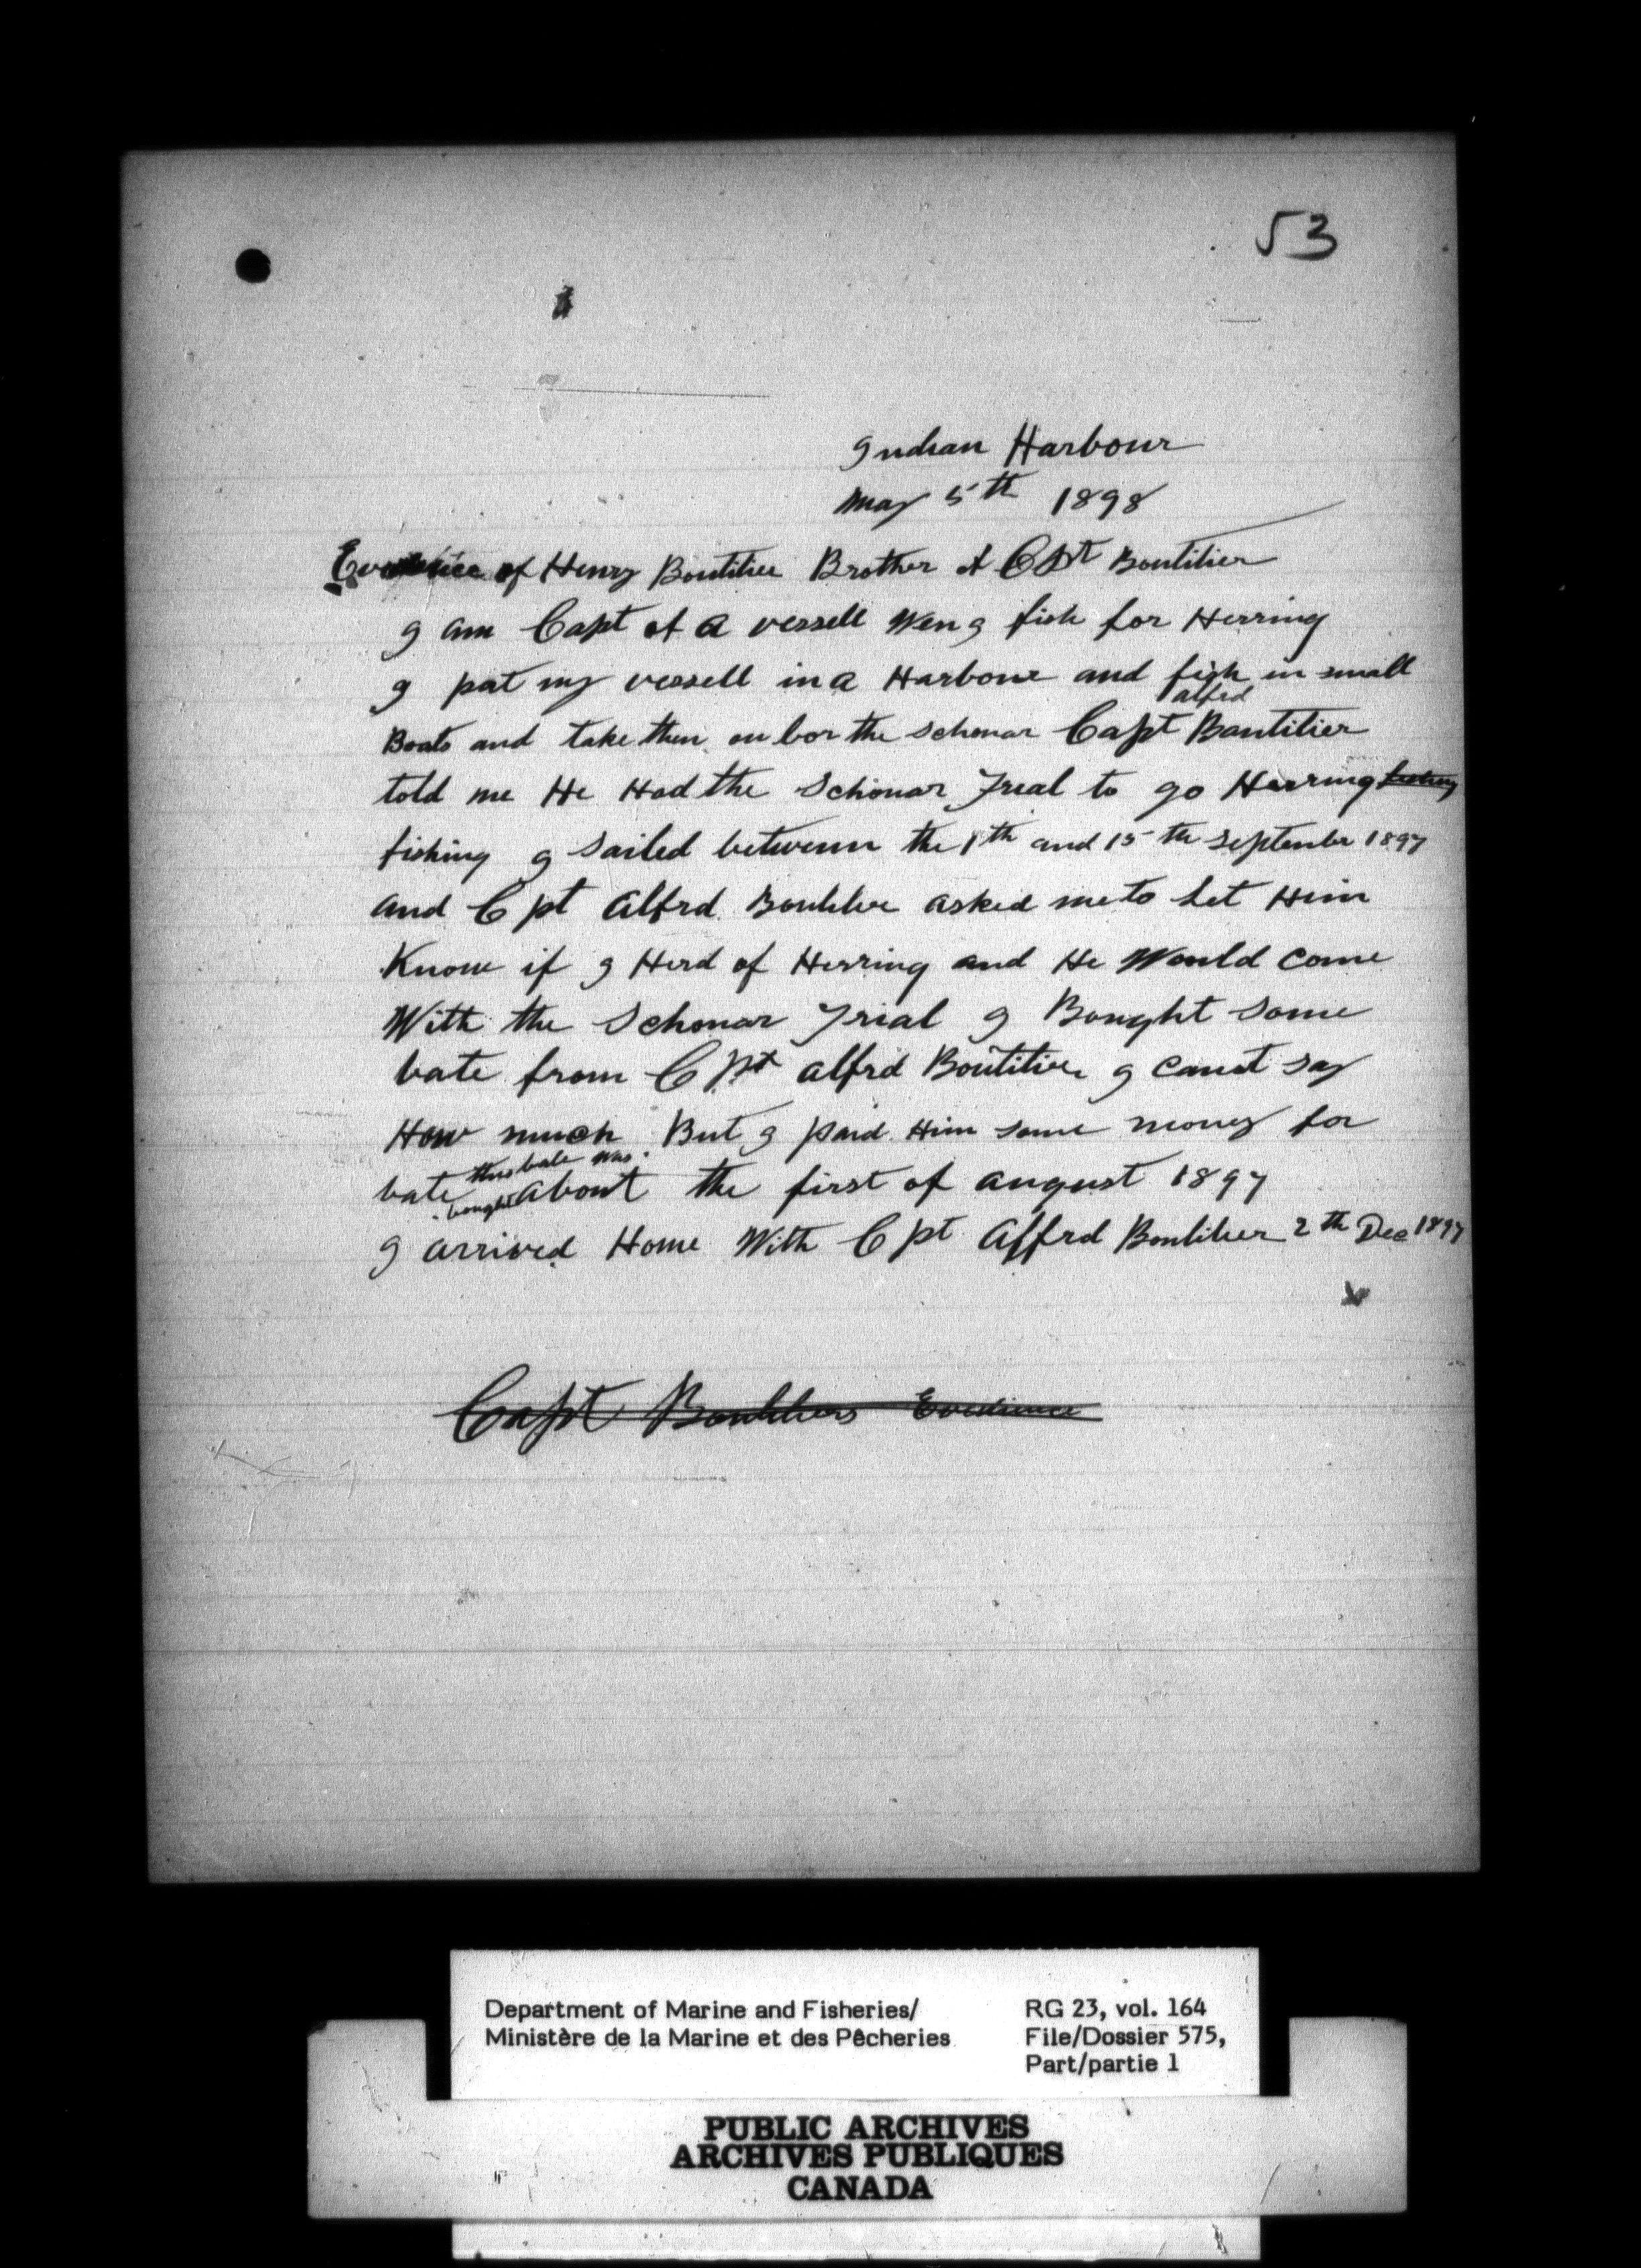 53
Indian Harbour
May 5th 1898
Evidence of Henry Boutilier Brother of Cpt Boutilier
I am Capt of a vessell Wen I fish for Herring
I put my vessell in a Harbour and fish in small
Boats and take them on bor the schonar Capt alfrd Boutilier
told me He Had the Schonar Trial to go Herring
fishing I Sailed betwenn the 1th and 15th September 1897
and Cpt Alfrd Boutilier asked me to Let Him
Know if I Herd of Herring and He Would Come
With the Schonar Trial I Bought Some
bate from Cpt alfrd Boutilier I Canot say
How much But I paid Him some money for
bate this bate was bought about the first of august 1897
I arrived Home With Cpt Alfrd Boutilier 2th Dec 1897
x
Capt Boutiliers Evidence
Department of Marine and Fisheries/
Ministère de la Marine et des Pêcheries
RG 23, vol. 164
File/Dossier 575,
Part/partie 1
PUBLIC ARCHIVES
ARCHIVES PUBLIQUES
CANADA